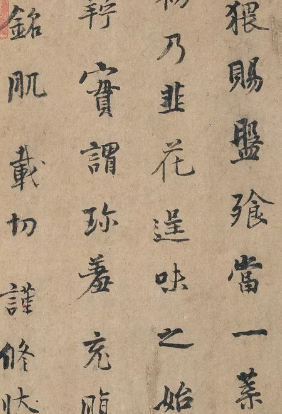 猥賜盤飧當一葉
乃韭花逞味之始
羜實謂珍羞充腹
銘肌載切謹修狀